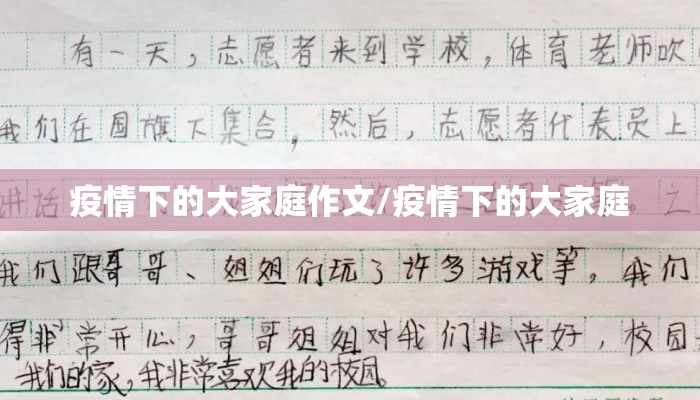 有一天，志愿者来到学校，体育老师吹
我们在国旗下集合，然后，志愿者代表员上
讲话
疫情下的大家庭作文/疫情下的大家庭
我们跟哥哥、姐姐们玩了许多游戏等，我们
得非常开心，哥哥姐姐对我们非常好，校园
我们的家，我非常喜欢我的校园。